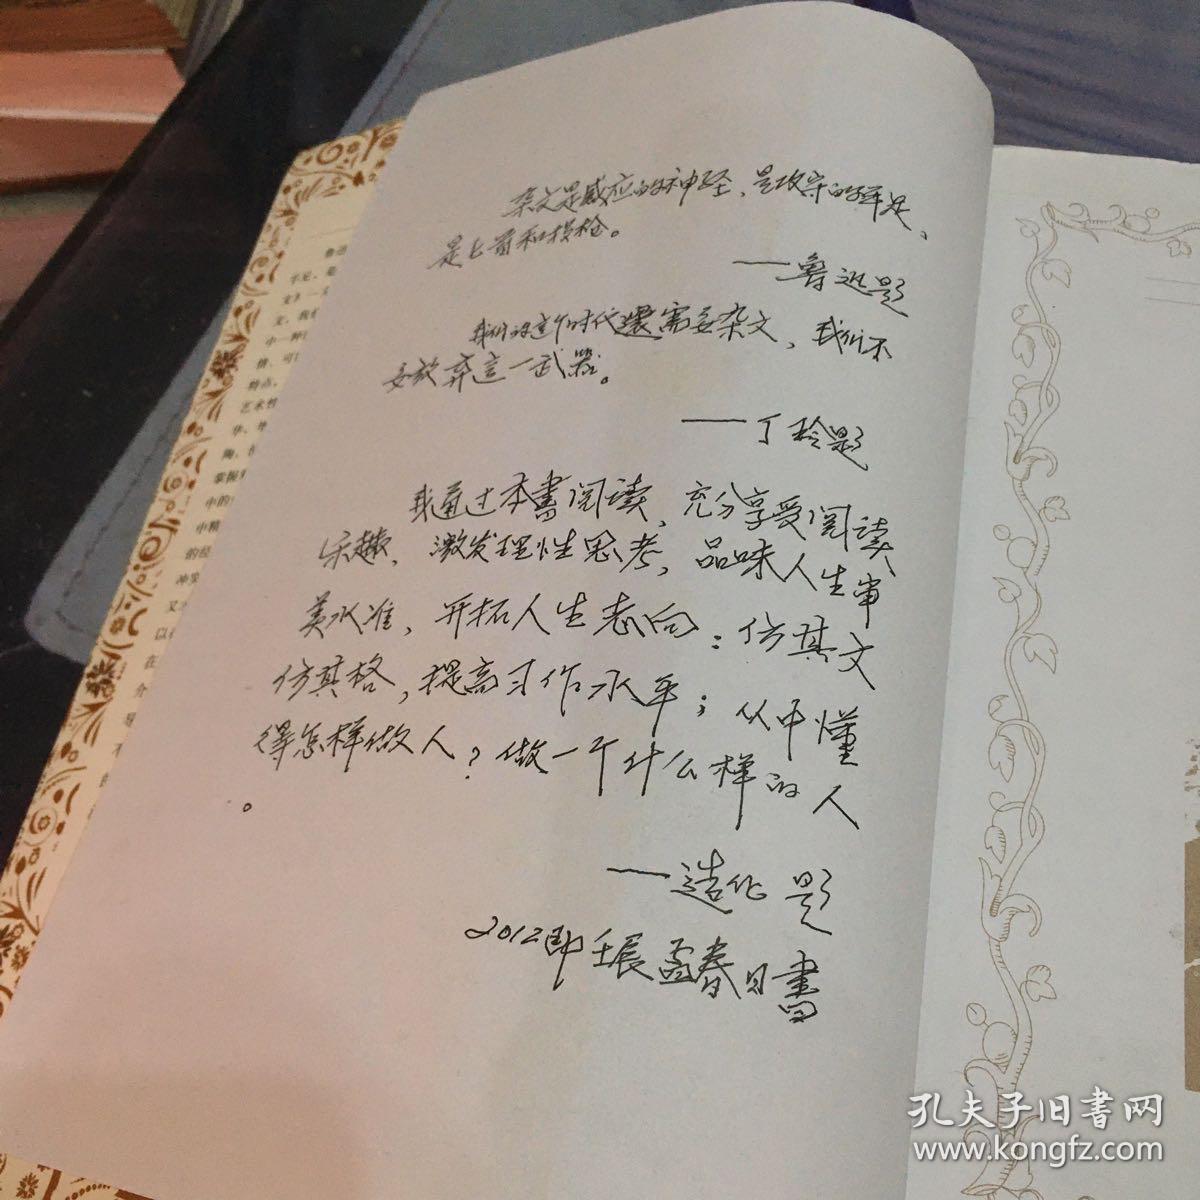 杂文是感应的神经，是攻守的手足，
是匕首和投枪。
——鲁迅题
我们的这个时代还需要杂文，我们不
要放弃这一武器。
——丁玲题
我通过本書阅读，充分享受阅读
乐趣，激发理性思考，品味人生审
美水准，开拓人生志向：仿其文
仿其格，提高习作水平；从中懂
得怎样做人？做一个什么样的人
。
——造化 题
2012即壬辰孟春日書
孔夫子旧書网
www.kongfz.com